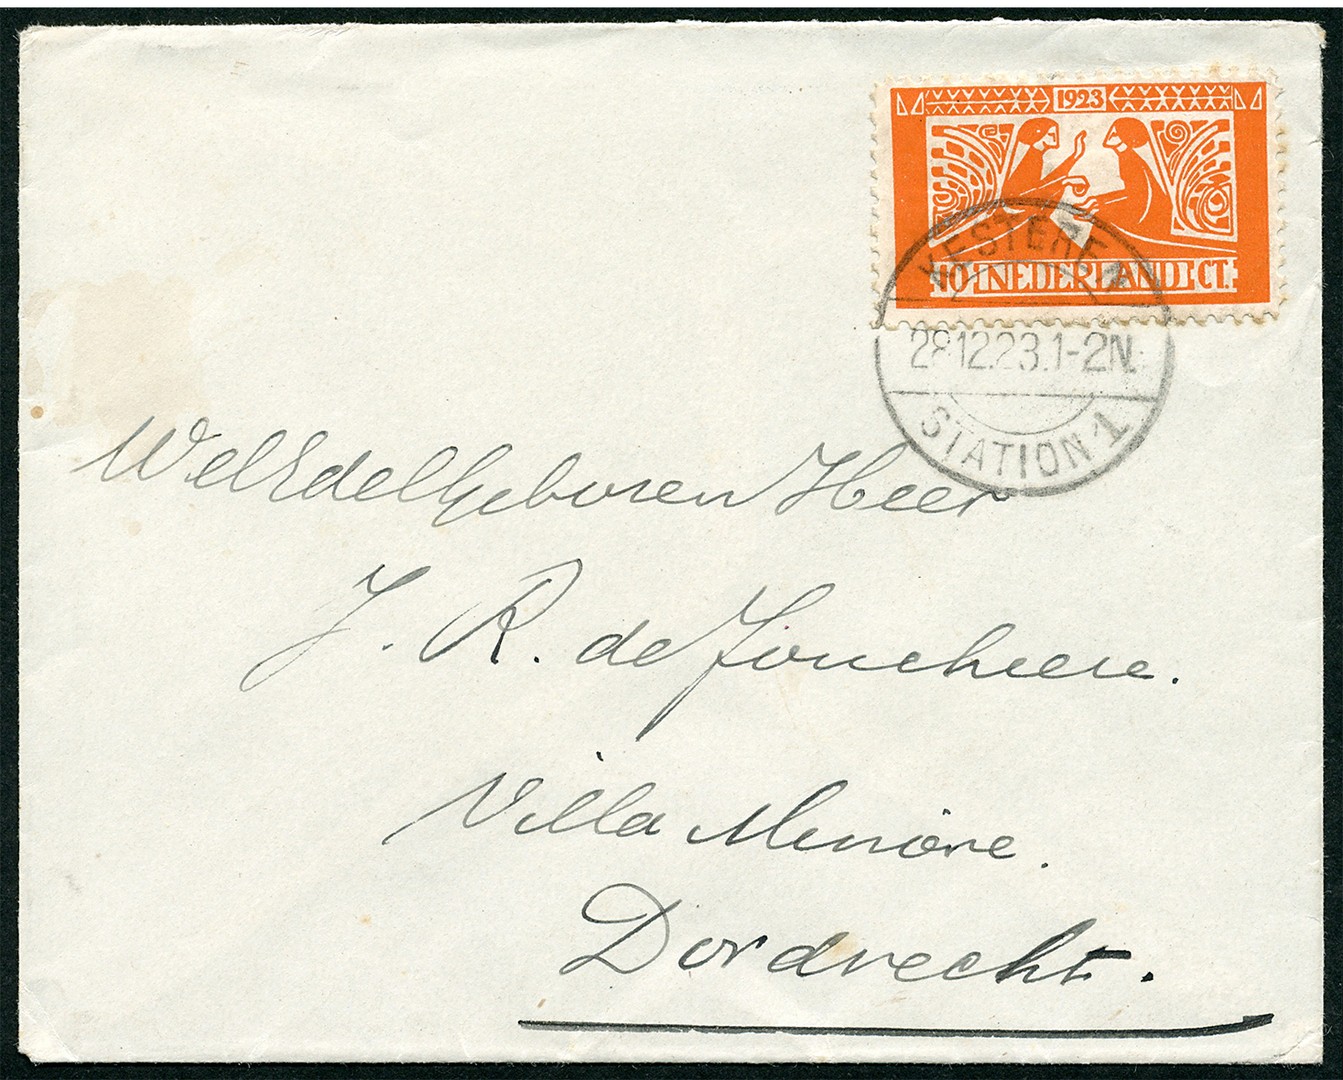 1923
10 NEDERLAND CT.
KESTEREN
28.12.23.1-2N.
STATION 1
WelEdelGeboren Heer
J. R. de Joncheere.
Villa Minore.
Dordrecht.